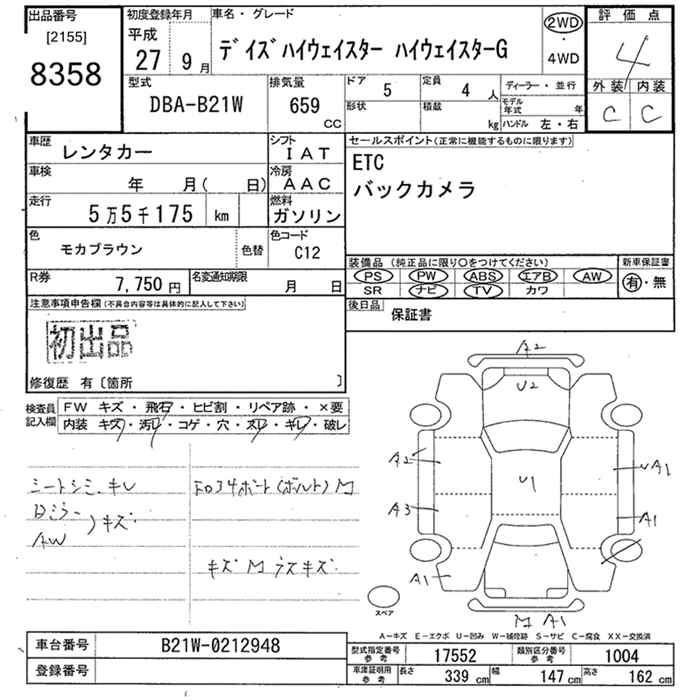 出品番号
[2155]
8358
初度登録年月
平成
27 9月
車名・グレード
デイズハイウェイスター ハイウェイスターG
2WD
・
4WD
評価点
4
外装 内装
C C
型式
DBA-B21W
排気量
659
CC
ドア 5
形状
定員 4 人
積載 kg
ディーラー・並行
モデル年式 年
ハンドル 左・右
車歴
レンタカー
シフト
IAT
車検
年 月( 日)
冷房
AAC
走行
5万5千175 km
燃料
ガソリン
色
モカブラウン
色替
色コード
C12
R券
7,750円
名変通知期限
月 日
セールスポイント(正常に機能するものに限ります)
ETC
バックカメラ
装備品(純正品に限り○をつけてください)
PS PW ABS エアB AW
SR ナビ TV カワ
新車保証書
有・無
後日品
保証書
注意事項申告欄(不具合内容等は具体的に記入して下さい)
初出品
修復歴 有〔箇所 〕
検査員
記入欄
FW キズ・飛石・ヒビ割・リペア跡・×要
内装 キズ・汚レ・コゲ・穴・スレ・キレ・破レ
シートシミ、キレ
Bミラー
AW
)キズ
キズ M ラスキズ
A2
U2
A2
U1
A1
A3
A1
A1
M A1
スペア
A-キズ E-エクボ U-凹み W-補修跡 S-サビ C-腐食 XX-交換済
車台番号
B21W-0212948
登録番号
型式指定番号
参考
17552
類別区分番号
参考
1004
車庫証明用
参考
長さ 339 cm
幅 147 cm
高さ 162 cm